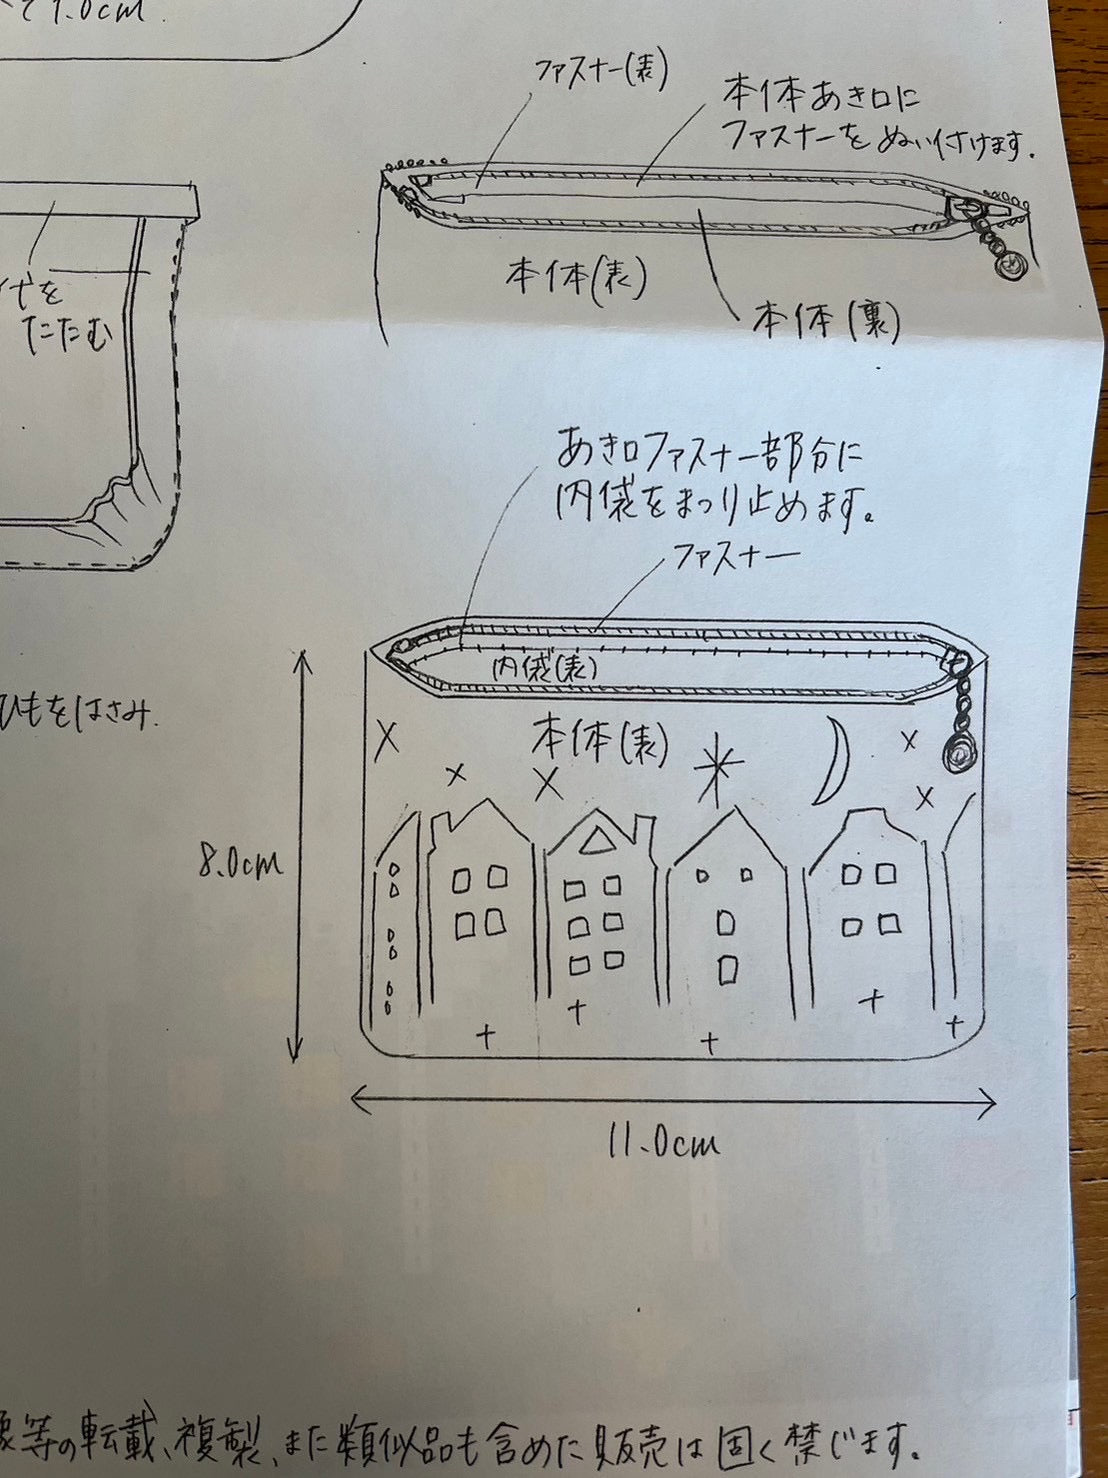 て1.0cm
ファスナー(表)
本体あき口に
ファスナーをぬい付けます.
本体(表)
本体(裏)
代を
たたむ
あき口ファスナー部分に
内袋をまつり止めます。
ファスナー
内袋(表)
ひもをはさみ.
本体(表)
8.0cm
11.0cm
等の転載、複製、また類似品も含めた販売は固く禁じます。